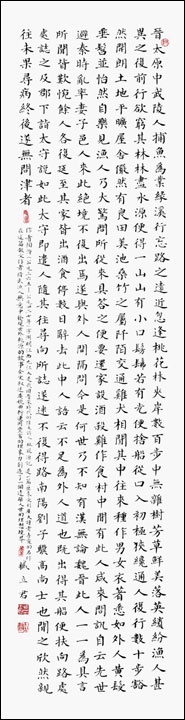 晉太原中武陵人捕魚為業緣溪行忘路之遠近忽逢桃花林夾岸數百步中無雜樹芳草鮮美落英繽紛漁人甚
異之復前行欲窮其林林盡水源便得一山山有小口髣髴若有光便捨船從口入初極狹纔通人復行數十步豁
然開朗土地平曠屋舍儼然有良田美池桑竹之屬阡陌交通雞犬相聞其中往來種作男女衣著悉如外人黃髮
垂髫並怡然自樂見漁人乃大驚問所從來具答之便要還家設酒殺雞作食村中聞有此人咸來問訊自云先世
避秦時亂率妻子邑人來此絕境不復出焉遂與外人間隔問今是何世乃不知有漢無論魏晉此人一一為具言
所聞皆歎惋餘人各復延至其家皆出酒食停數日辭去此中人語云不足為外人道也既出得其船便扶向路處
處誌之及郡下詣太守說如此太守即遣人隨其往尋向所誌遂迷不復得路南陽劉子驥高尚士也聞之欣然親
往未果尋病終後遂無問津者